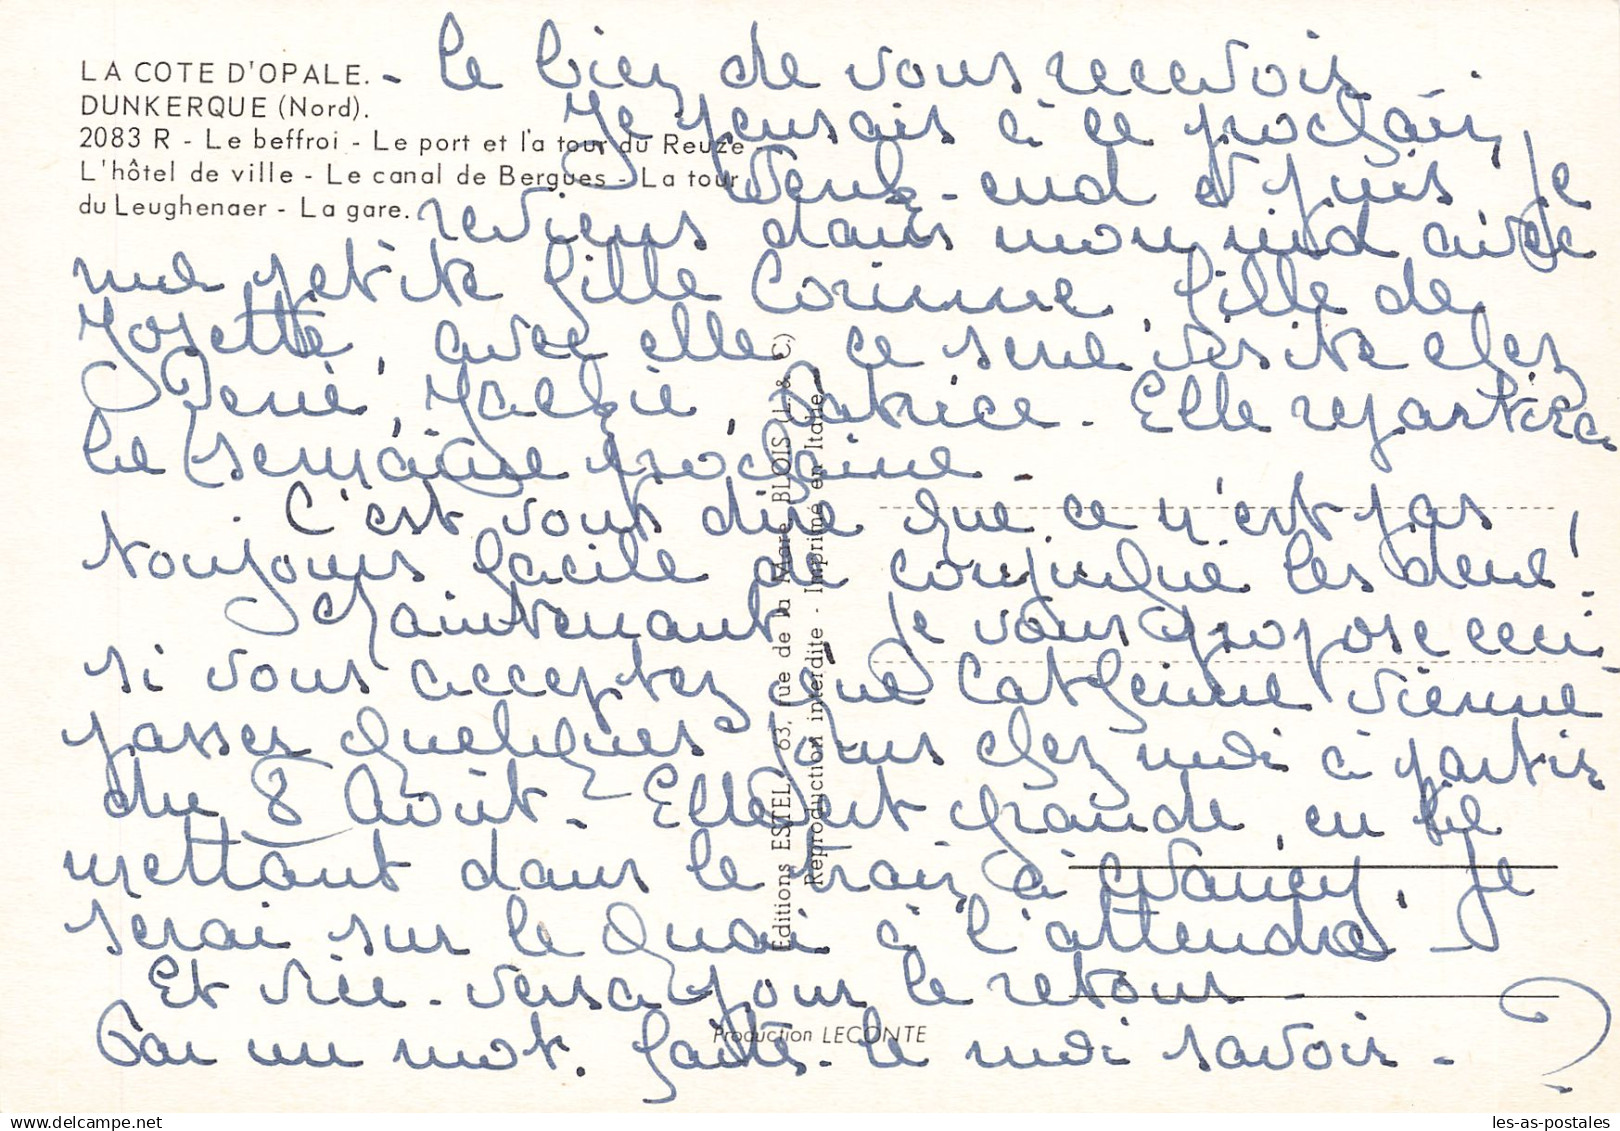 LA COTE D'OPALE. -
DUNKERQUE (Nord).
2083 R - Le beffroi - Le port et la tour du Reuze
L'hôtel de ville - Le canal de Bergues - La tour
du Leughenaer - La gare.
le bien de vous recevoir.
Je pensais à ce prochain
week-end et puis je
reviens dans mon nid avec
ma petite fille Corinne, fille de
Josette, avec elle, ce sera visite chez
René, Patrice. Elle repartira
la semaine prochaine.
C'est vous dire que ce n'est pas
toujours facile de conjuguer les deux !
Maintenant je vous propose ceci
si vous acceptez que Catherine vienne
passer quelques jours chez moi à partir
du 8 Août. Elle est grande, en la
mettant dans le train à Nancy, je
serai sur le quai à l'attendre -
Et vice-versa pour le retour -
Par un mot. faites-le moi savoir - ?
Editions ESTEL, 63, rue de la Mare BLOIS (L.& C)
Reproduction interdite - Imprimé en Italie
Production LECONTE
les-as-postales